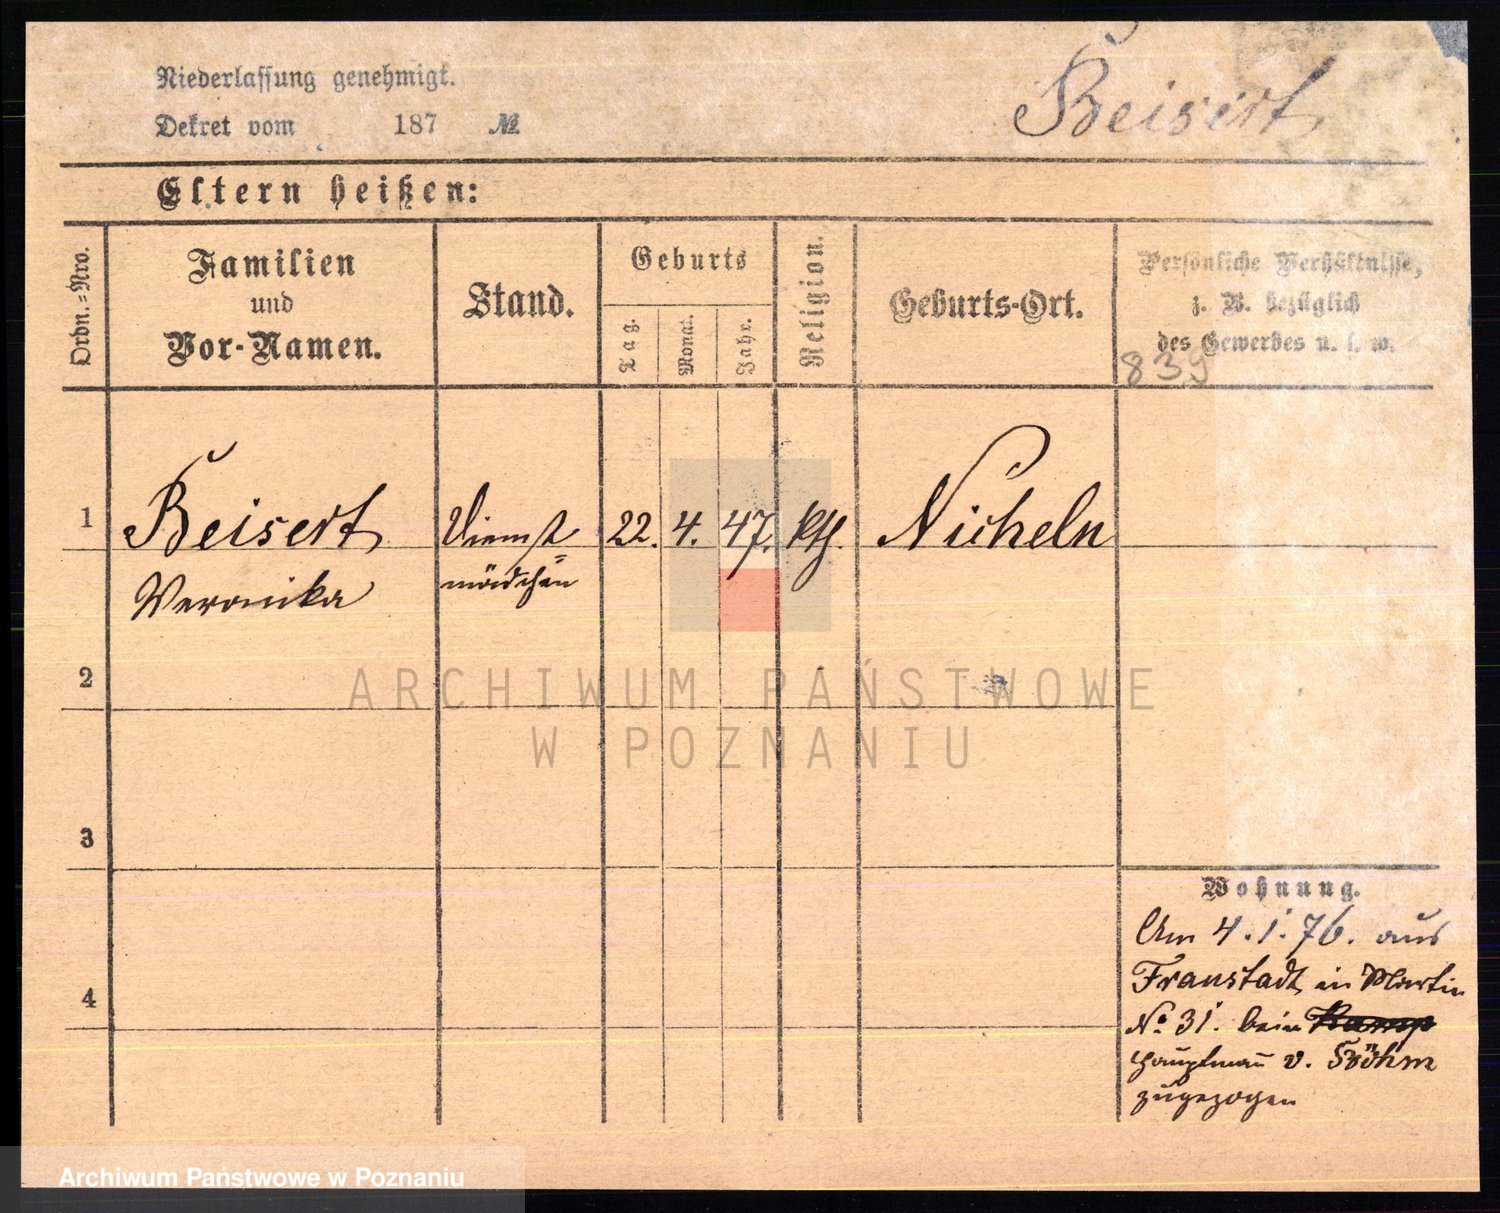 Niederlassung genehmigt.
Dekret vom 187 №
Beisert
Eltern heißen:
Ordn.=Nro.
Familien
und
Vor-Namen.
Stand.
Geburts
Tag.
Monat.
Jahr.
Religion.
Geburts-Ort.
Persönliche Verhältnisse,
z. B. bezüglich
des Gewerbes u. s. w.
839
1 Beisert Dienst= 22. 4. 47. kth. Nicheln
Veronika mädchen
2
ARCHIWUM PAŃSTWOWE
W POZNANIU
3
Wohnung.
Am 4.1.76. aus
Fraustadt in Martin
4
No 31. beim
Hauptmann v. Böhm
zugezogen
Archiwum Państwowe w Poznaniu